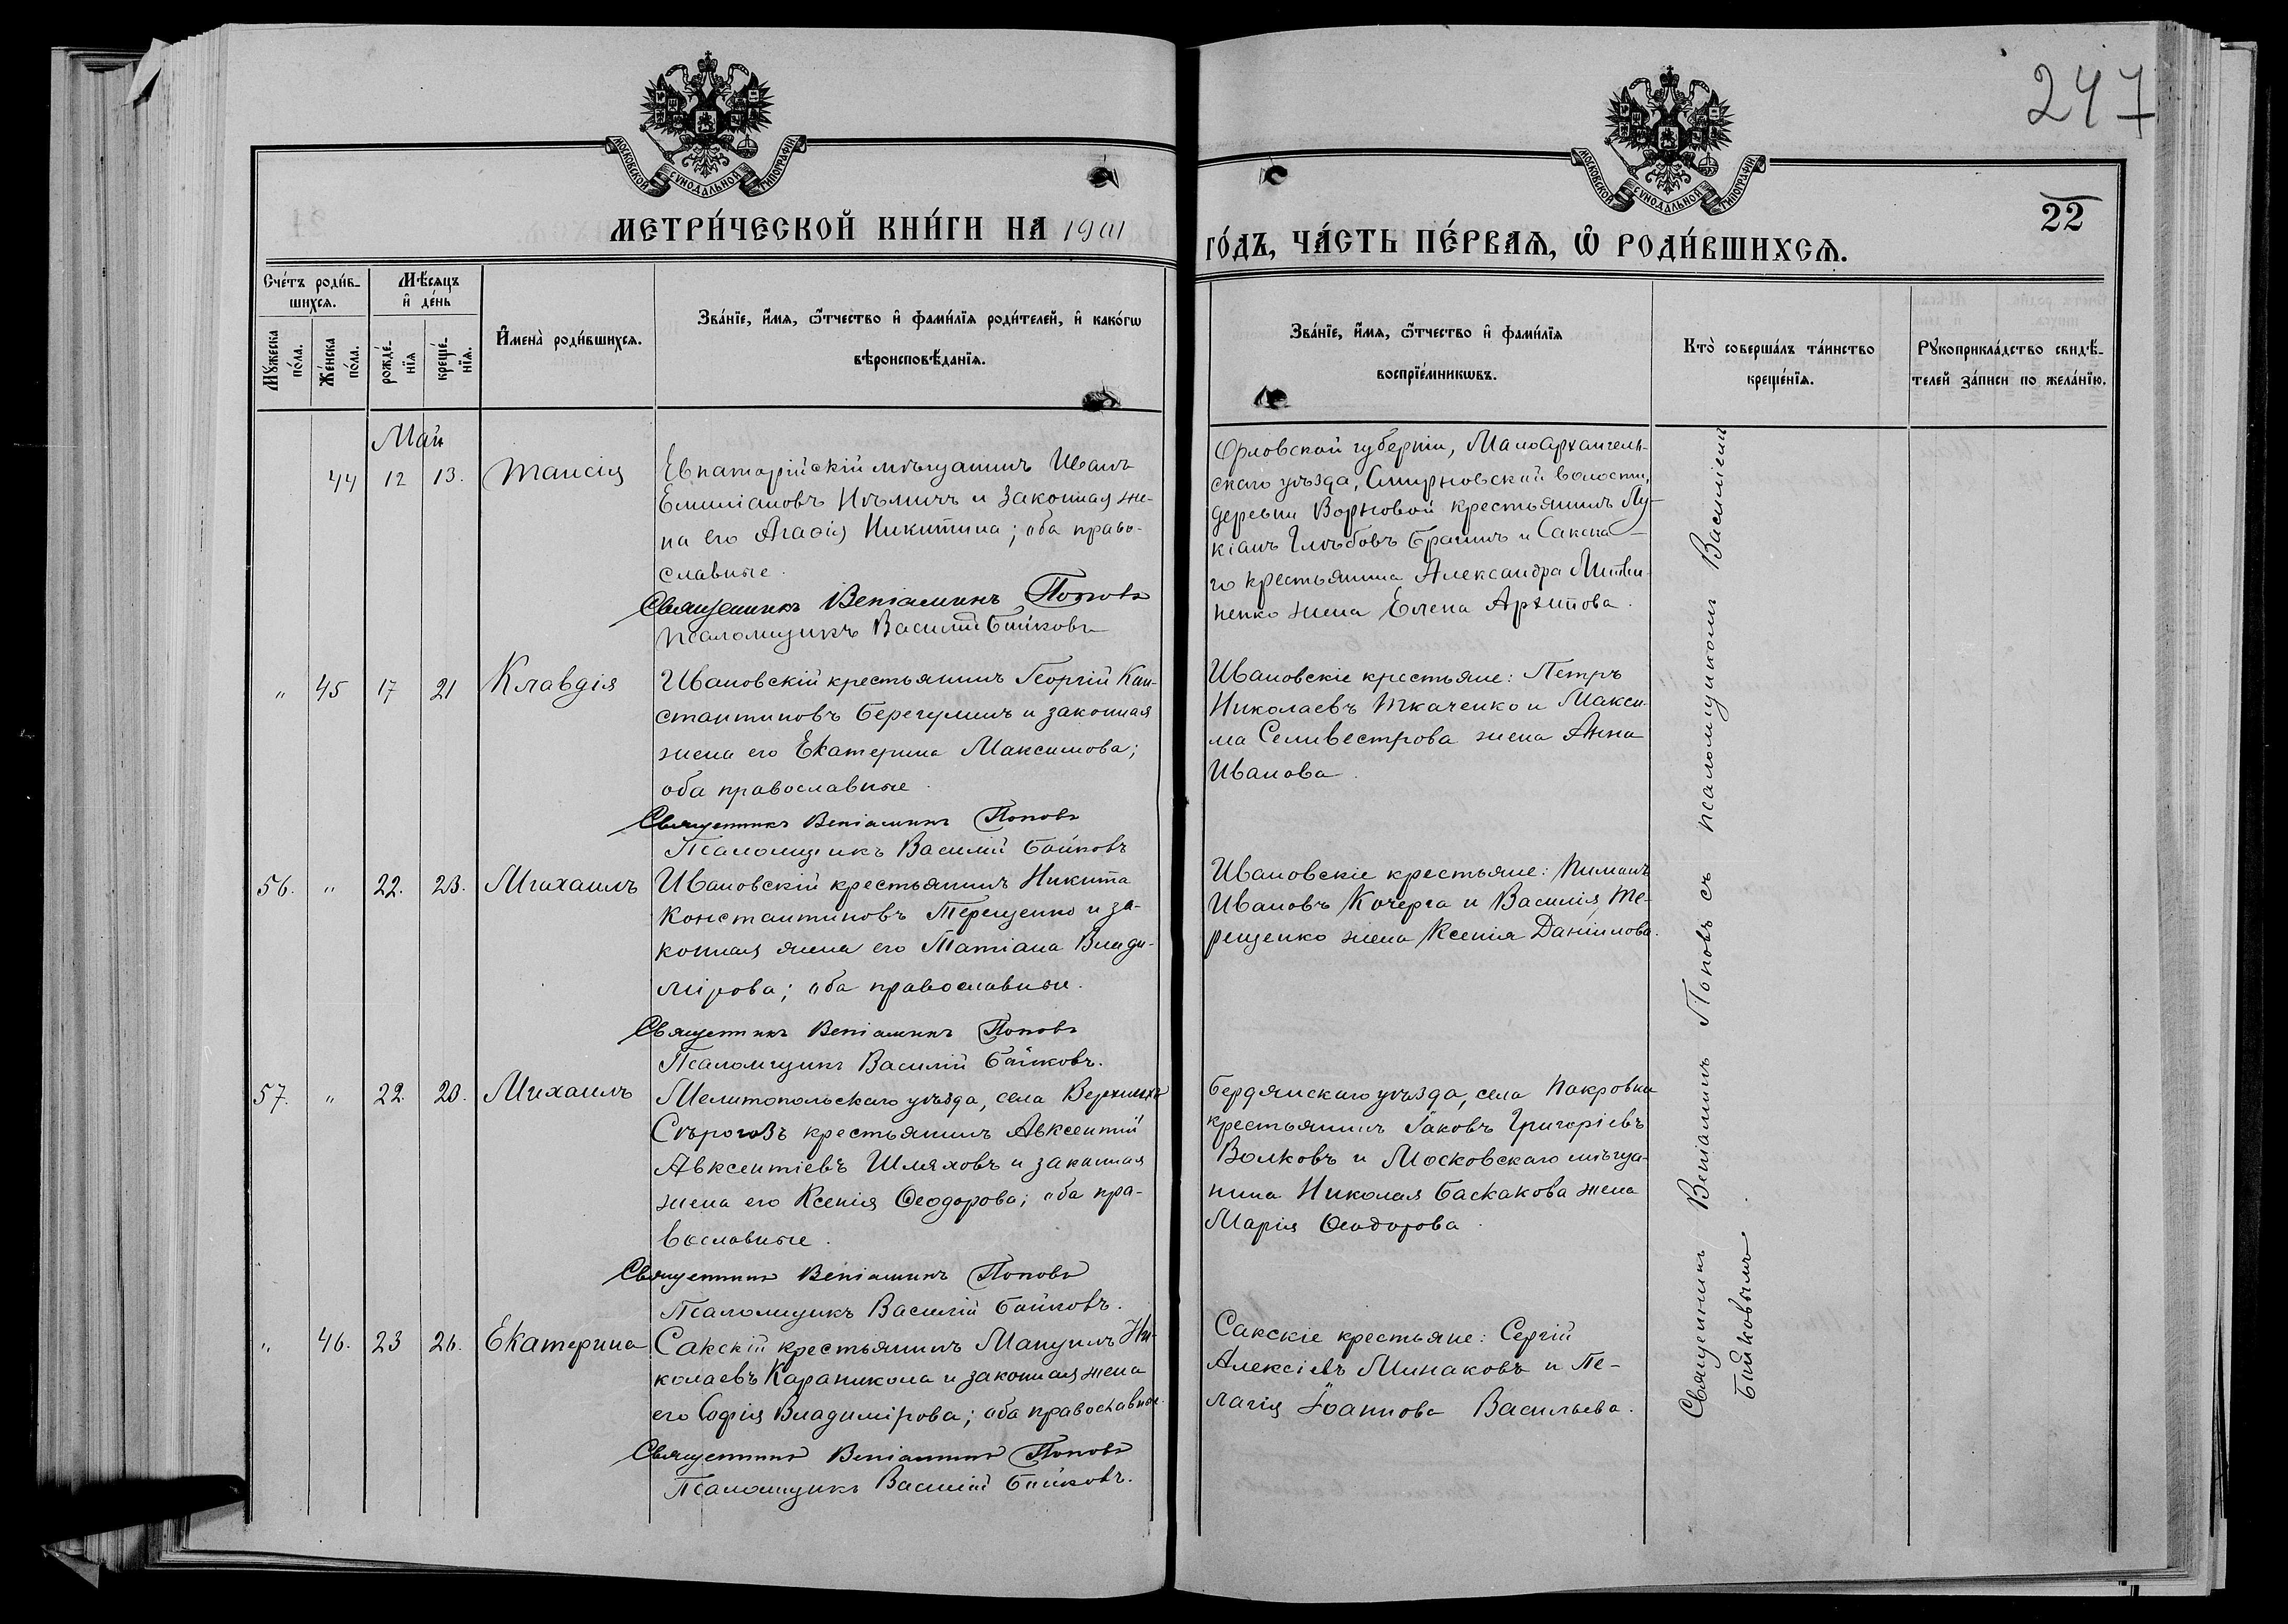 247
МОСКОВСКОЙ СѴНОДАЛЬНОЙ ТИПОГРАФІИ
МОСКОВСКОЙ СѴНОДАЛЬНОЙ ТИПОГРАФІИ
22
МЕТРИ́ЧЕСКОЙ КНИ́ГИ НА 1901
ГО́ДЪ, ЧА́СТЬ ПЕ́РВАЯ, Ѡ РОДИ́ВШИХСЯ.
Сче́тъ роди́в-
шихся.
Мѣ́сяцъ
и де́нь
Му́жеска
по́ла.
Же́нска
по́ла.
рожде́-
нія
креще́-
нія.
Имена̀ роди́вшихся.
Зва́нїе, и́мя, ѻ́тчество и фами́лїя роди́телей, и како́гѡ
вѣроисповѣ́данїя.
Зва́нїе, и́мя, ѻ́тчество и фами́лїя
воспрїе́мникѡвъ.
Кто̀ соверша́лъ та́инство
креще́нїя.
Рукоприкла́дство свидѣ́-
телей за́писи по жела́нїю.
Май
44 12 13. Таисія
Евпаторійскій мѣщанинъ Иванъ
Емиліановъ и законная же-
на его Агаѳія Никитина; оба право-
славные.
Священникъ Веніаминъ Поповъ
Псаломщикъ Василій Бойковъ
Орловской губерніи, Малоархангель-
скаго уѣзда, Смирновской волости,
деревни Ворновой крестьянинъ Лу-
кіанъ Глѣбовъ Ерминъ и Сакска-
го крестьянина Александра Литви-
ненко жена Елена Архипова.
" 45 17 21 Клавдія
Ивановскій крестьянинъ Георгій Кон-
стантиновъ Берегулинъ и законная
жена его Екатерина Максимова;
оба православные.
Священникъ Веніаминъ Поповъ
Псаломщикъ Василій Бойковъ
Ивановскіе крестьяне: Петръ
Николаевъ Ткаченко и Макси-
ма Селивестрова жена Анна
Иванова.
56. " 22. 23. Михаилъ
Ивановскій крестьянинъ Никита
Константиновъ Терещенко и за-
конная жена его Татіана Влади-
мірова; оба православные.
Священникъ Веніаминъ Поповъ
Псаломщикъ Василій Бойковъ.
Ивановскіе крестьяне: Пиманъ
Ивановъ Кочерга и Василія Те-
рещенко жена Ксенія Даніилова.
57. " 22. 20. Михаилъ
Мелитопольскаго уѣзда, села Верхнихъ
Сѣрогозъ крестьянинъ Авксентій
Авксентіевъ Шляховъ и законная
жена его Ксенія Ѳеодорова; оба пра-
вославные.
Священникъ Веніаминъ Поповъ
Псаломщикъ Василій Бойковъ.
Бердянскаго уѣзда, села Покровки
крестьянинъ Іаковъ Григоріевъ
Волковъ и Московскаго мѣща-
нина Николая Баскакова жена
Марія Ѳеодорова.
" 46. 23 26. Екатерина
Сакскій крестьянинъ Мануилъ Ни-
колаевъ Караникола и законная жена
его Софія Владимірова; оба православные.
Священникъ Веніаминъ Поповъ
Псаломщикъ Василій Бойковъ.
Сакскіе крестьяне: Сергій
Алексіевъ Минаковъ и Пе-
лагія Іоаннова Васильева.
Священникъ Веніаминъ Поповъ съ псаломщикомъ Василіемъ
Бойковымъ.